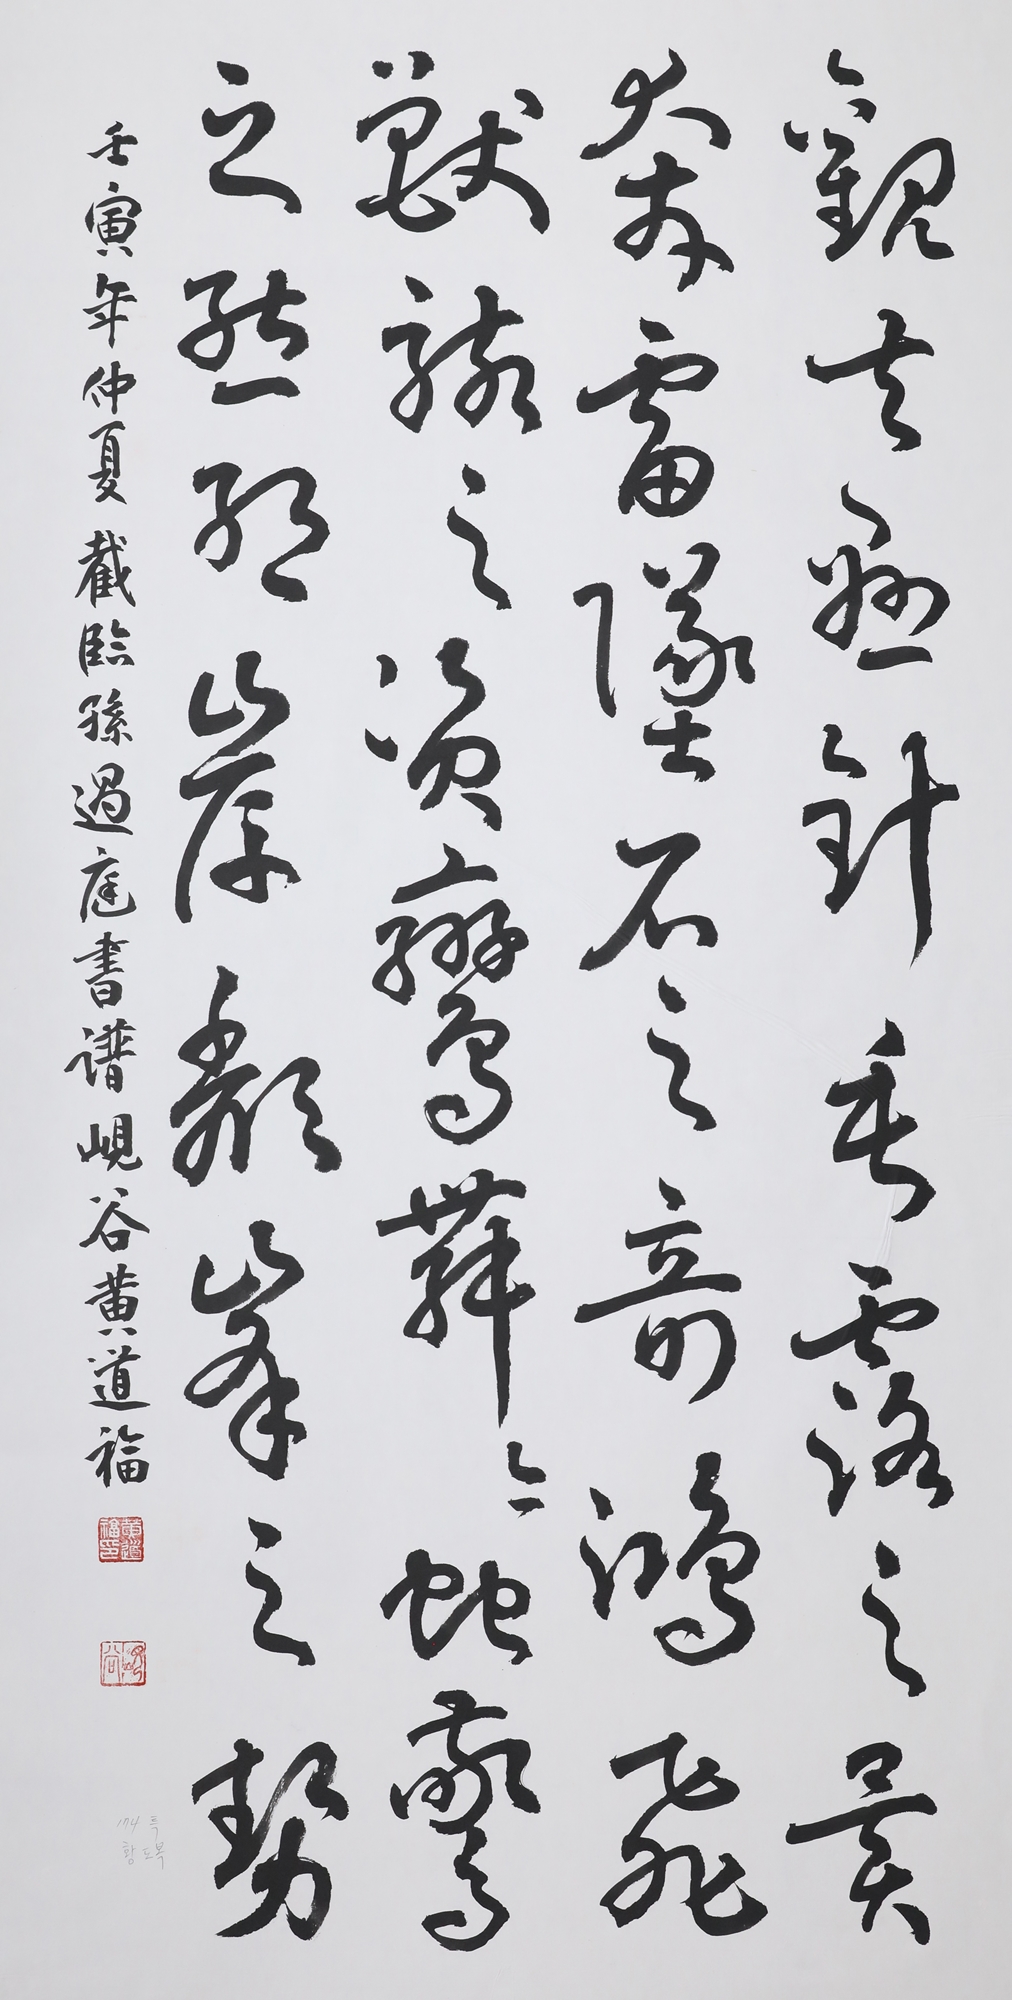 觀夫懸針垂露之異
奔雷墜石之奇鴻飛
獸駭之資鸞舞蛇驚
之態絕岸頹峯之勢
壬寅年仲夏截臨孫過庭書譜峴谷黃道福
黃道福印
峴谷
174 특
황도복